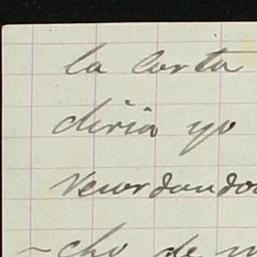 la carta
diria yo
recordando
cho de